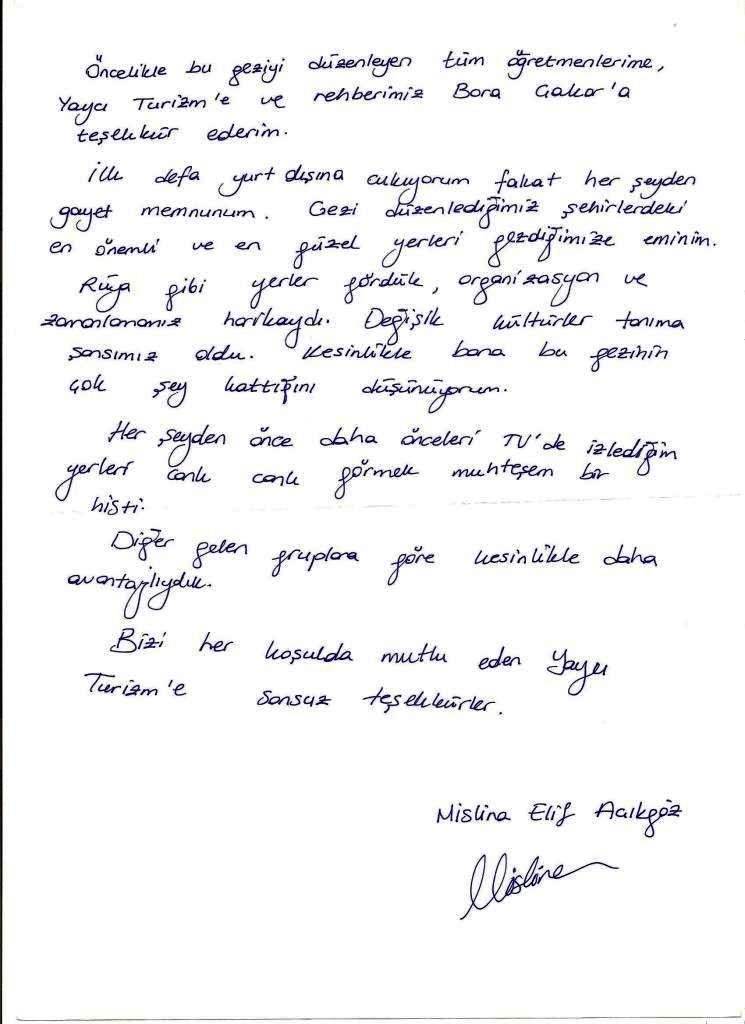 Öncelikle bu geziyi düzenleyen tüm öğretmenlerime,
Yaycı Turizm'e ve rehberimiz Bora Gakor'a
teşekkür ederim.
İlk defa yurt dışına çıkıyorum fakat her şeyden
gayet memnunum. Gezi düzenlediğimiz şehirlerdeki
en önemli ve en güzel yerleri gezdiğimize eminim.
Rüya gibi yerler gördük, organizasyon ve
zamanlamanız harikaydı. Değişik kültürler tanıma
şansımız oldu. Kesinlikle bana bu gezinin
çok şey kattığını düşünüyorum.
Her şeyden önce daha önceleri TV'de izlediğim
yerleri canlı canlı görmek muhteşem bir
histi.
Diğer gelen gruplara göre kesinlikle daha
avantajlıydık.
Bizi her koşulda mutlu eden Yaycı
Turizm'e sonsuz teşekkürler.
Mislina Elif Acıkgöz
Mislina